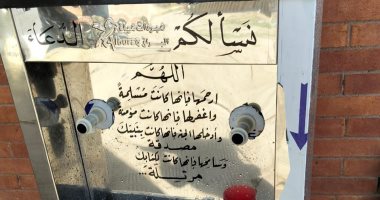 نسألكم الدعاء
اللهم
ارحمها فإنها كانت مسلمة
واغفر لها فإنها كانت مؤمنة
وأدخلها الجنة فإنها كانت بنبيك
مصدقة
وسامحها فإنها كانت لكتابك
مرتلة ...